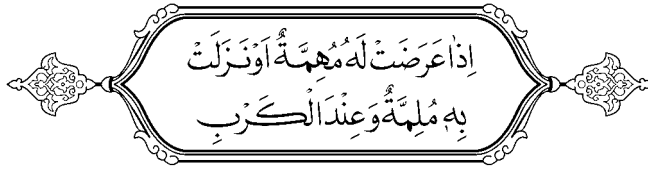 اِذَا عَرَضَتْ لَهُ مُهِمَّةٌ اَوْ نَزَلَتْ
بِهِ مُلِمَّةٌ وَعِنْدَ الْكَرْبِ